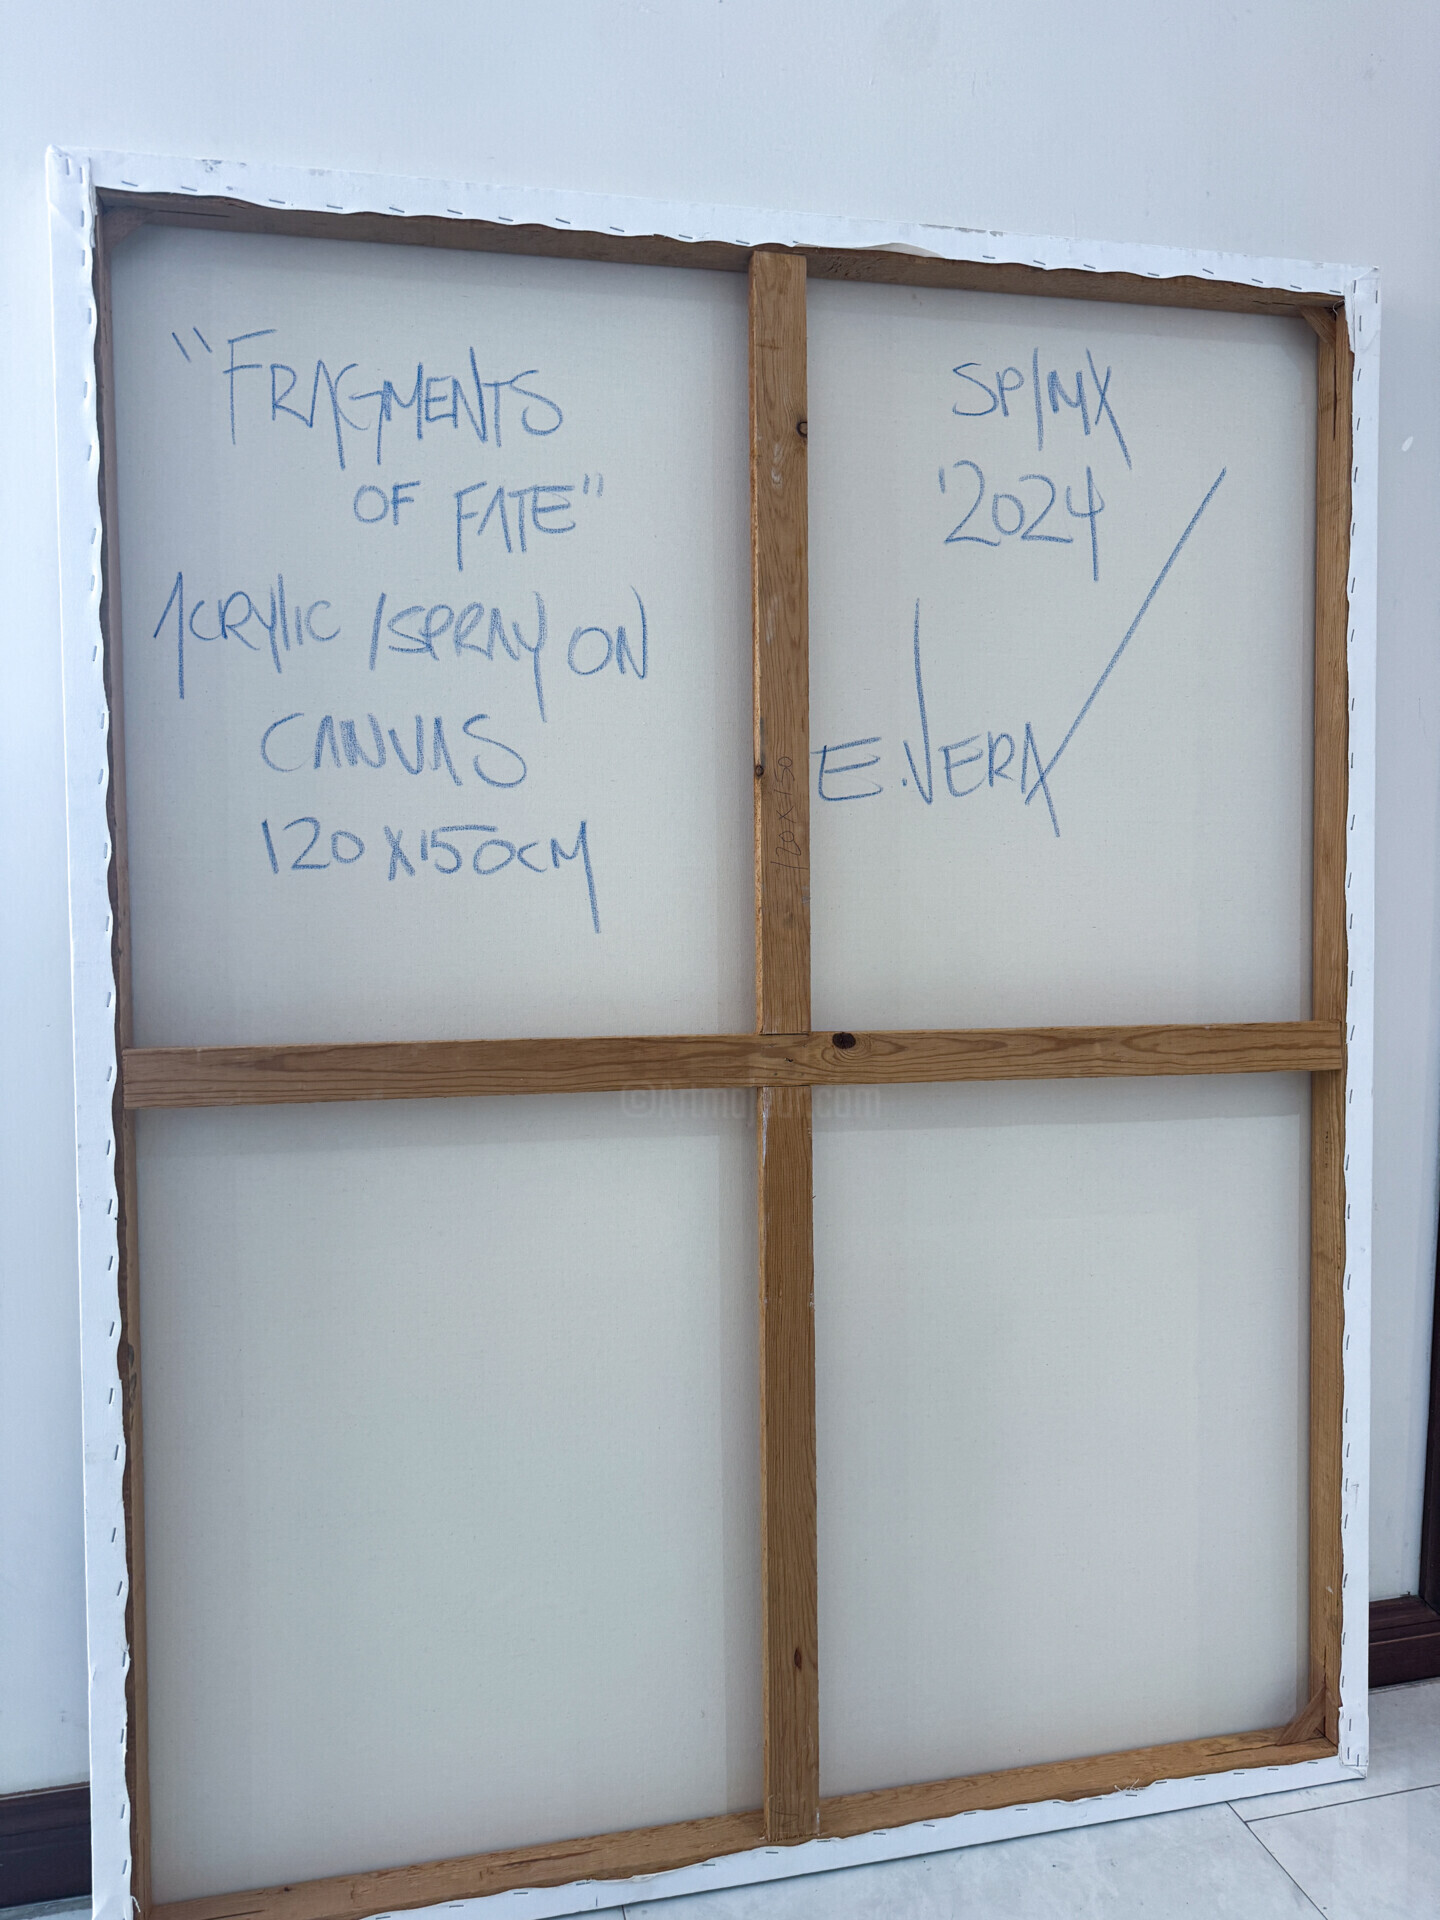 "FRAGMENTS
OF FATE"
ACRYLIC / SPRAY ON
CANVAS
120 X 150CM
SP/MX
'2024
E. VERA
120 X 150
©Artmajeur.com